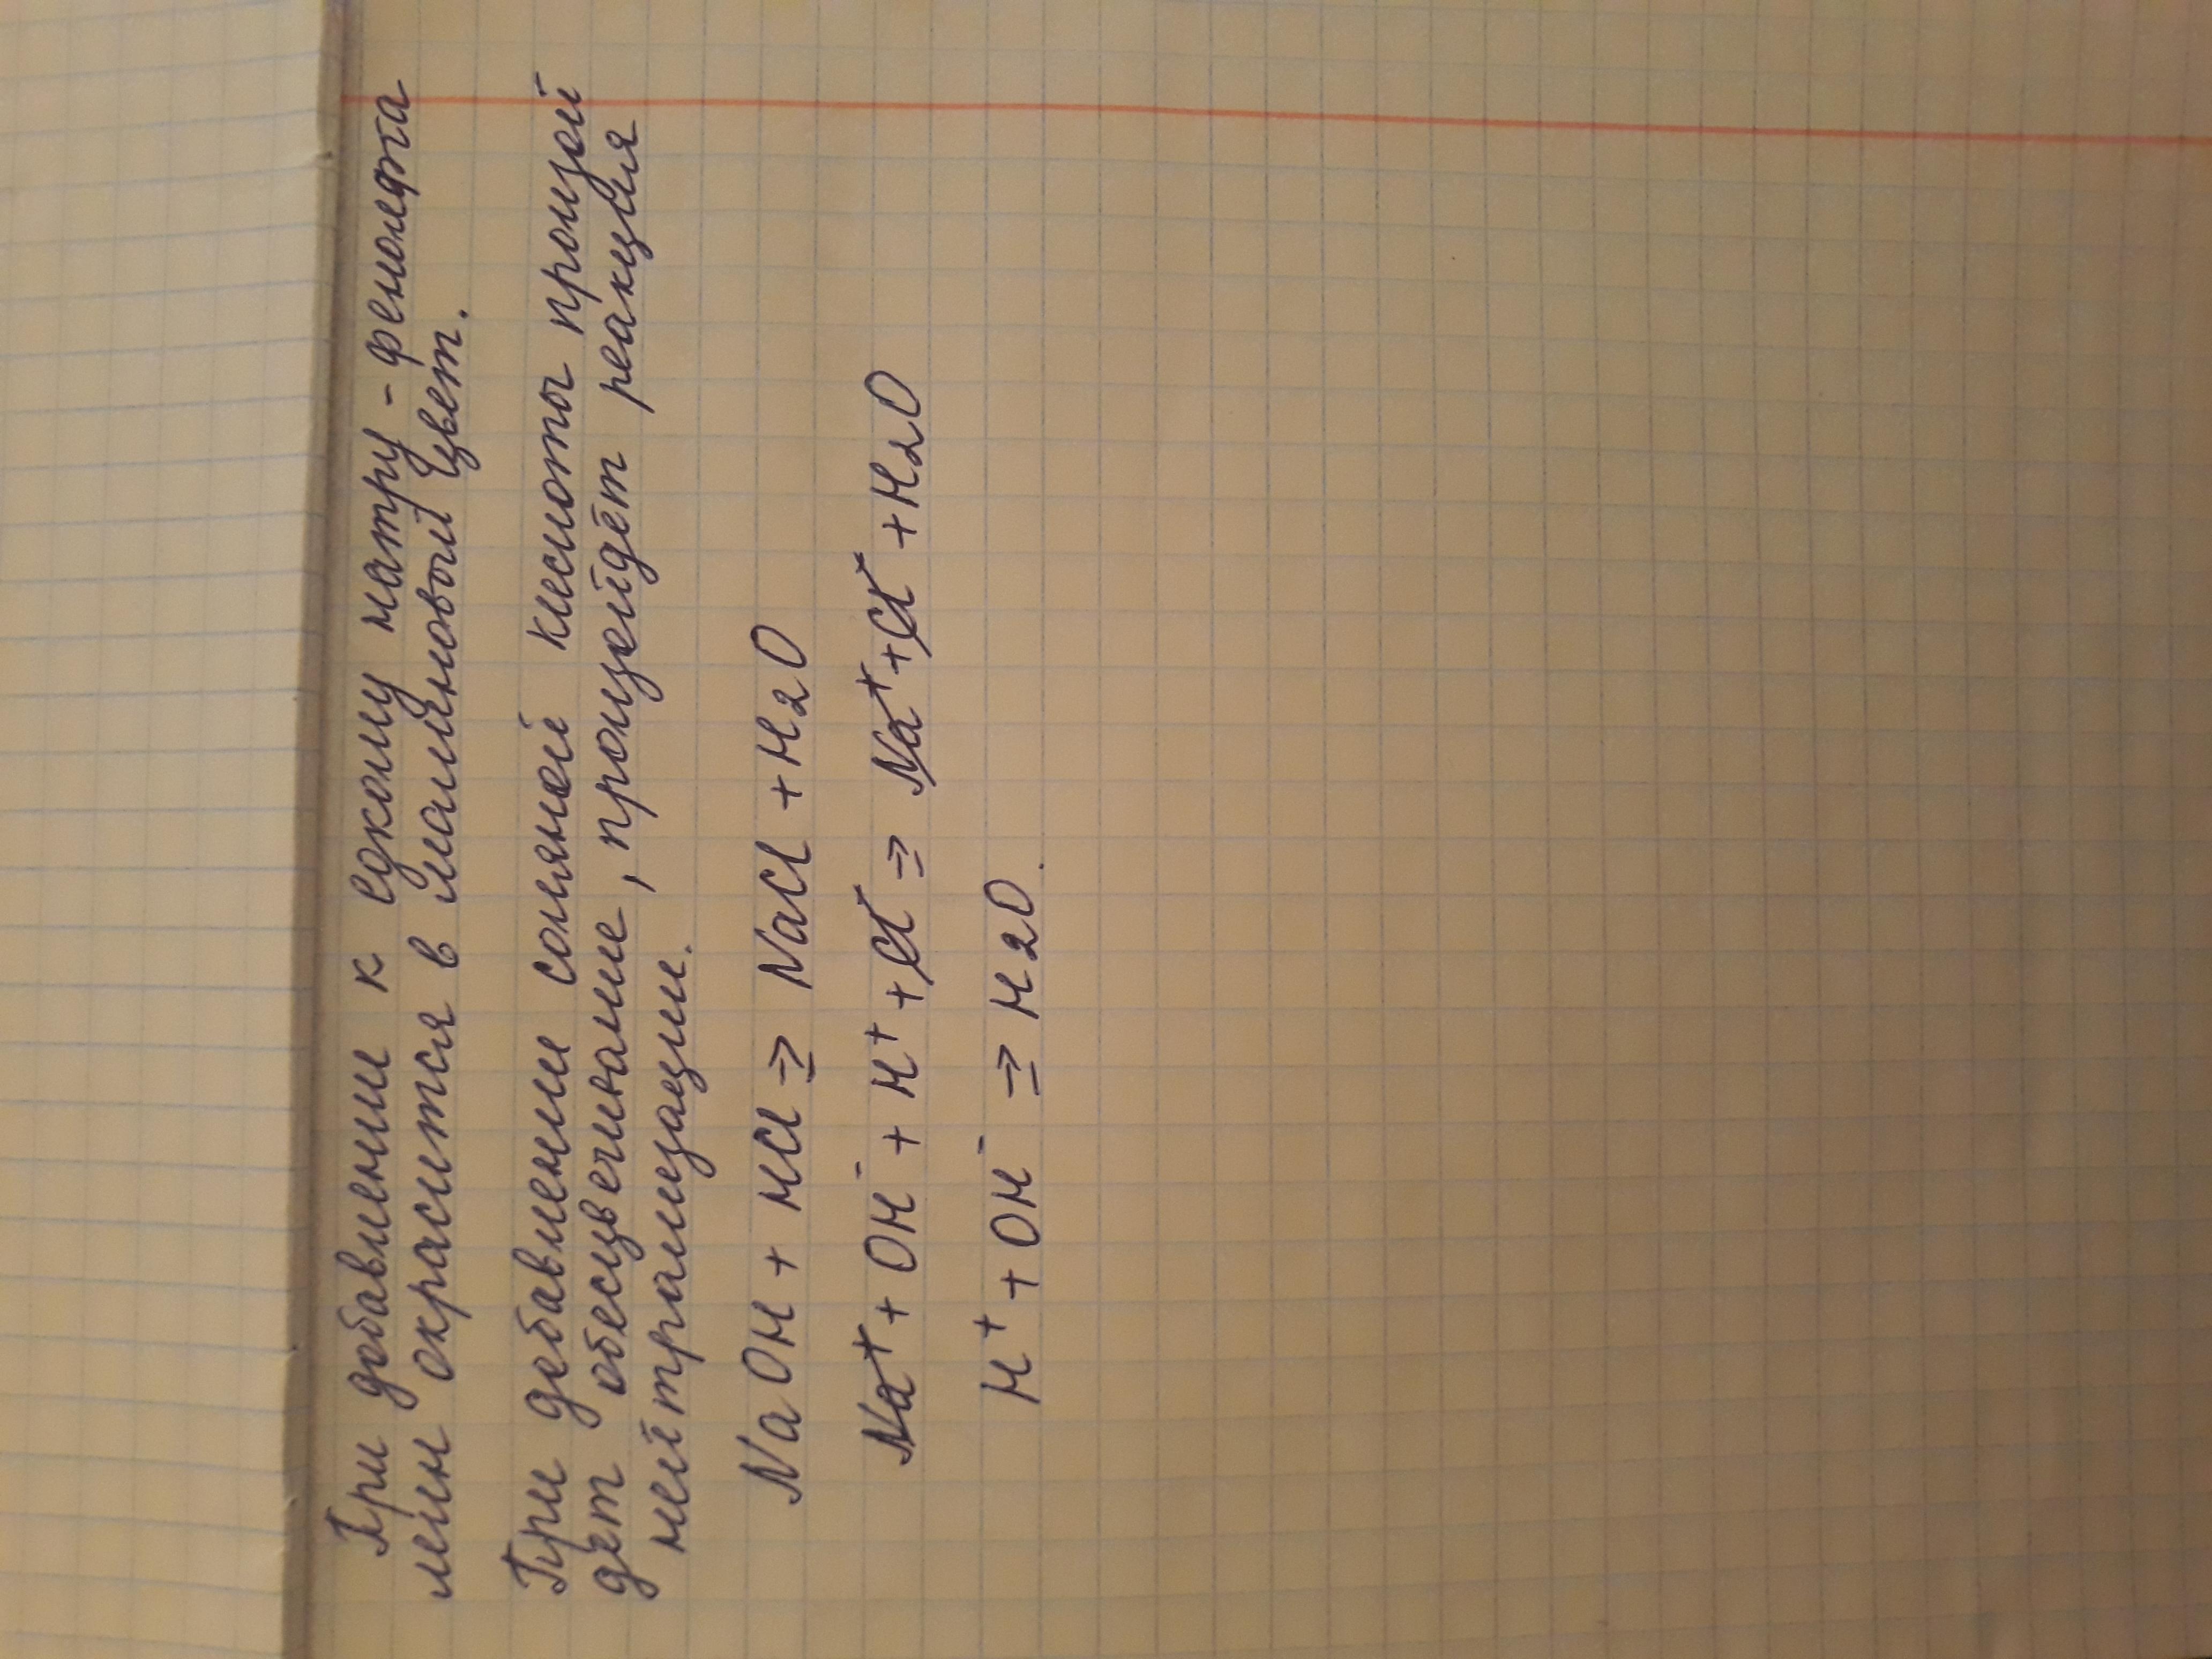 При добавлении к едкому натру - фенолфта
леин окрасится в малиновый цвет.
При добавлении соляной кислоты произой
дёт обесцвечивание, произойдёт реакция
нейтрализации.
NaOH + HCl ⇒ NaCl + H2O
Na⁺ + OH⁻ + H⁺ + Cl⁻ ⇒ Na⁺ + Cl⁻ + H2O
H⁺ + OH⁻ ⇒ H2O.